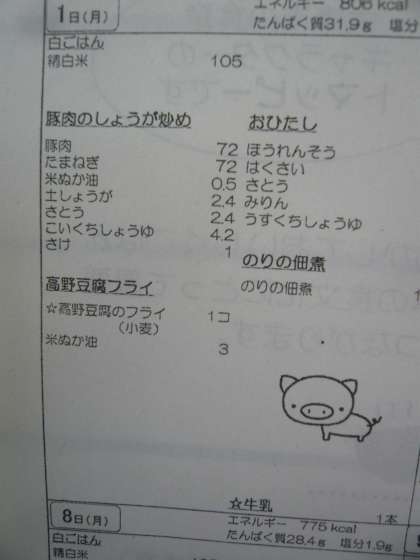 1日(月)
エネルギー 806 kcal
たんぱく質31.9g 塩分
白ごはん
精白米 105
豚肉のしょうが炒め
豚肉 72
たまねぎ 72
米ぬか油 0.5
土しょうが 2.4
さとう 2.4
こいくちしょうゆ 4.2
さけ 1
高野豆腐フライ
☆高野豆腐のフライ 1コ
(小麦)
米ぬか油 3
おひたし
ほうれんそう
はくさい
さとう
みりん
うすくちしょうゆ
のりの佃煮
のりの佃煮 1
☆牛乳 1本
8日(月)
エネルギー 775 kcal
たんぱく質28.4g 塩分1.9g
白ごはん
精白米 105